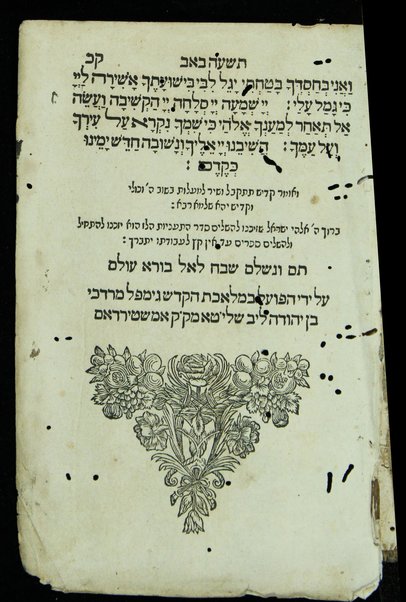 תשעה באב קכ
וַאֲנִי בְּחַסְדְּךָ בָטַחְתִּי יָגֵל לִבִּי בִּישׁוּעָתֶךָ אָשִׁירָה לַיְיָ
כִּי גָמַל עָלָי: יְיָ שְׁמָעָה יְיָ סְלָחָה יְיָ הַקְשִׁיבָה וַעֲשֵׂה
אַל תְּאַחַר לְמַעַנְךָ אֱלֹהַי כִּי שִׁמְךָ נִקְרָא עַל עִירְךָ
וְעַל עַמֶּךָ: הֲשִׁיבֵנוּ יְיָ אֵלֶיךָ וְנָשׁוּבָה חַדֵּשׁ יָמֵינוּ
כְּקֶדֶם:
ואומר קדיש תתקבל ושיר למעלות בשוב ה' וכולי
וקדיש יהא שלמא רבא:
ברוך ה' אלהי ישראל שזיכנו להשלים סדר התעניות הלז הוא יזכנו להתחיל
ולהשלים ספרים עד אין קץ לעבודתו יתברך:
תם ונשלם שבח לאל בורא עולם
על ידי הפועל במלאכת הקדש גימפל מרדכי
בן יהודה ליב שליטא מק"ק אמשטירדאם